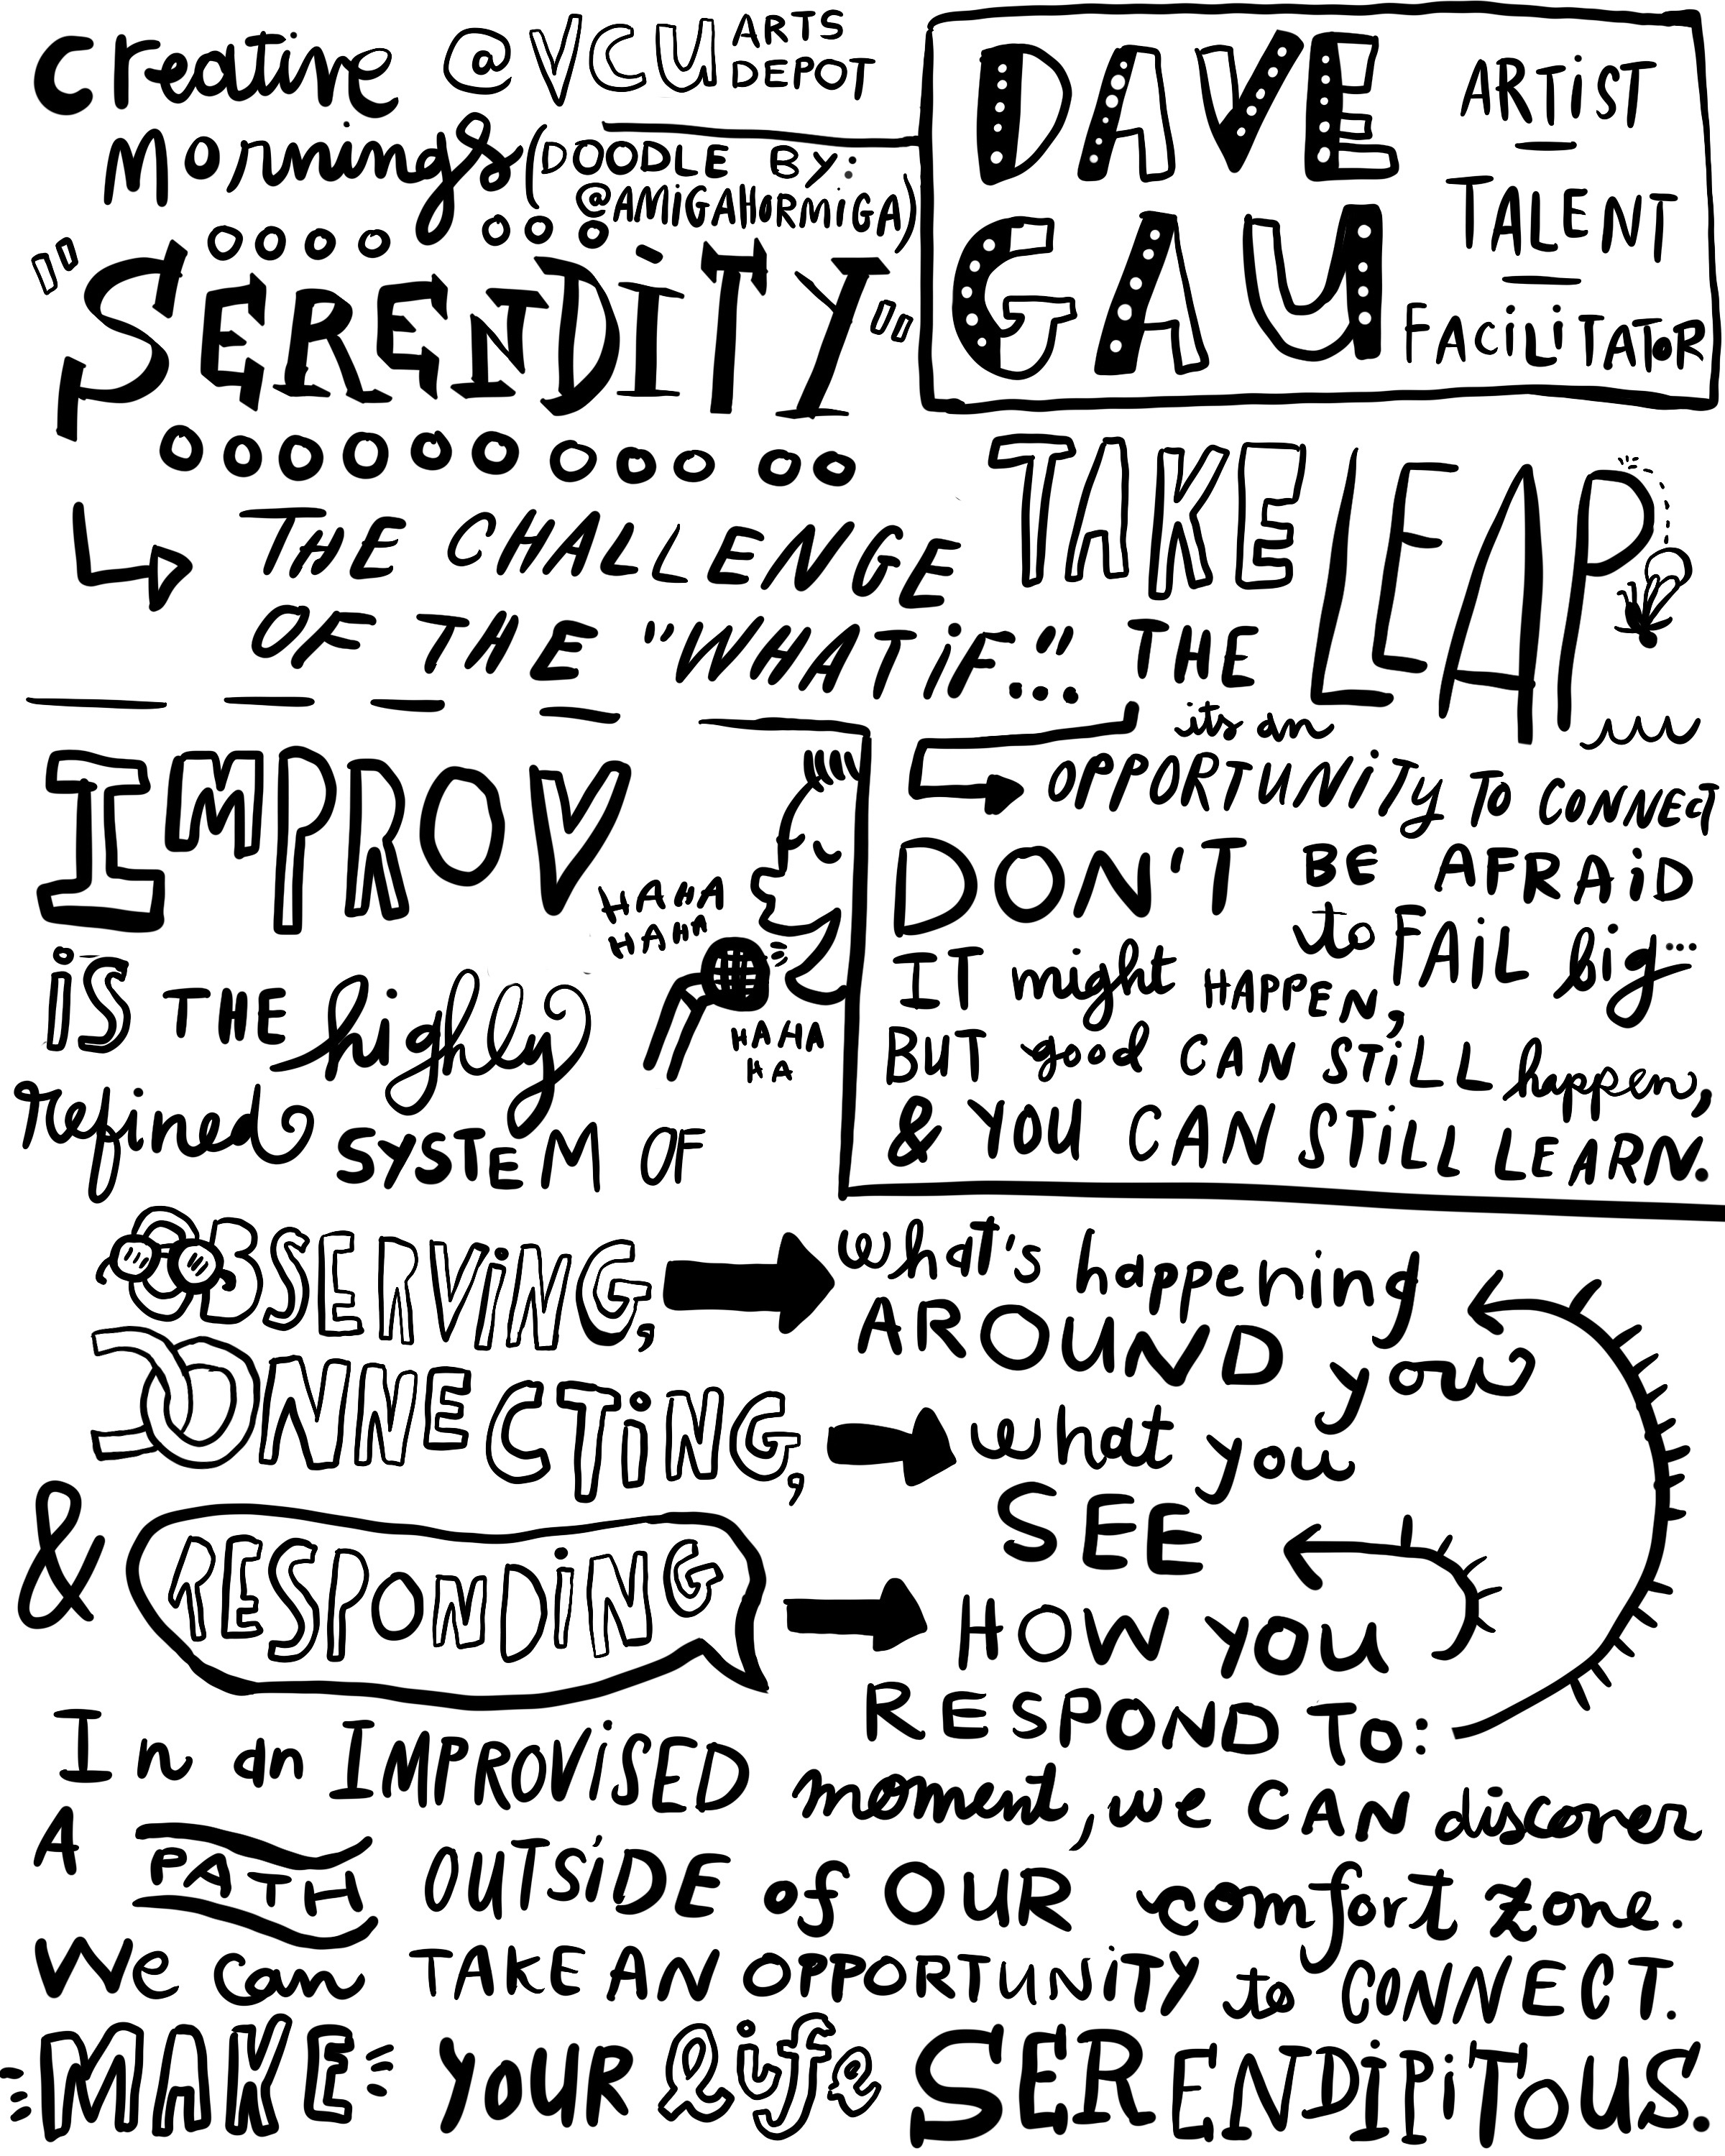 Creative @ VCU ARTS DEPOT
Mornings (DOODLE BY:
@AMiGAHORMiGA)
"SERENDiTY"
DAVE
GAU
ARTiST
TALENT
FACiLiTATOR
THE CHALLENGE
OF THE "WHAT iF..."
TAKE
THE LEAP
its an
OPPORTUNiTy TO CONNECT
DON'T BE AFRAiD
to FAiL big...
IT might HAPPEN,
BUT good CAN STiLL happen,
& YOU CAN STiLL LEARN.
IMPROV
HAHA
HAHA
HAHA
HA
iS THE highly
refined SYSTEM OF
OBSERViNG,
what's happening
AROUND you
CONNECTiNG,
what you
SEE
& RESPONDiNG
HOW YOU
RESPOND TO:
In an IMPROViSED moment, we CAN discover
A PATH OUTSiDE of OUR comfort zone.
We can TAKE AN OPPORTUNiTY to CONNECT.
MAKE YOUR Life SERENDiPiTOUS.